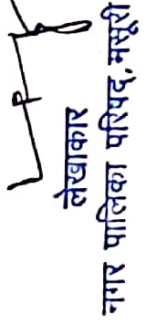 लेखाकार
नगर पालिका परिषद्, मसूरी